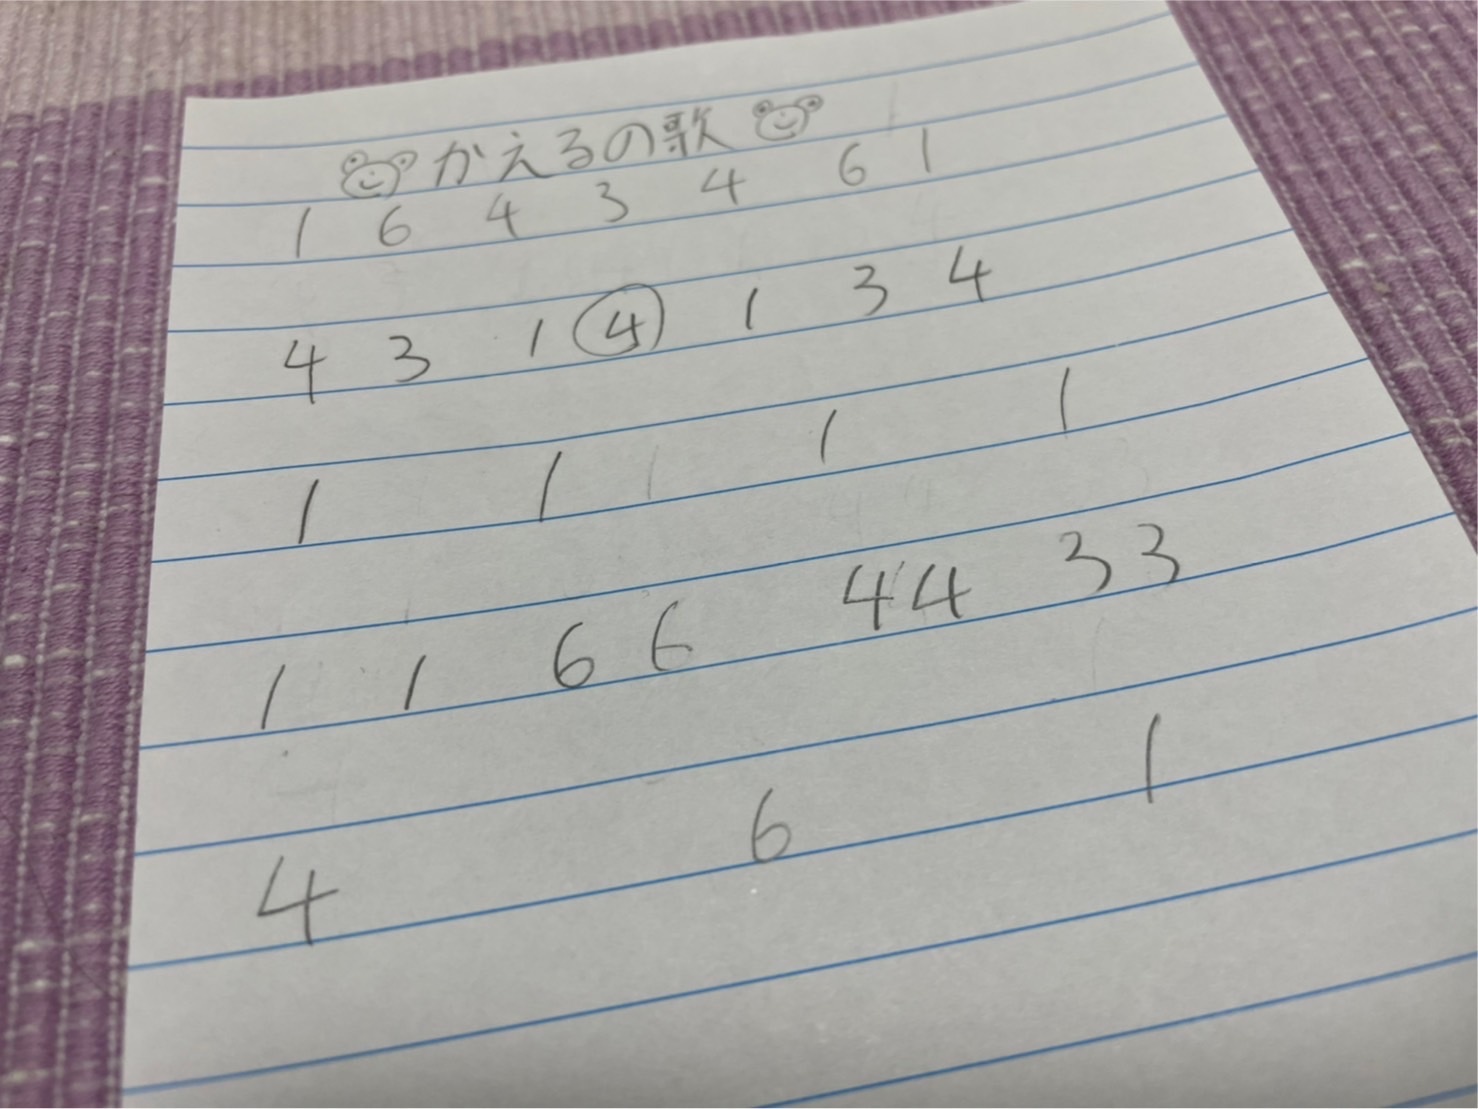 かえるの歌
1 6 4 3 4 6 1
4 3 1 ④ 1 3 4
1 1 1 1
1 1 6 6 44 33
4 6 1